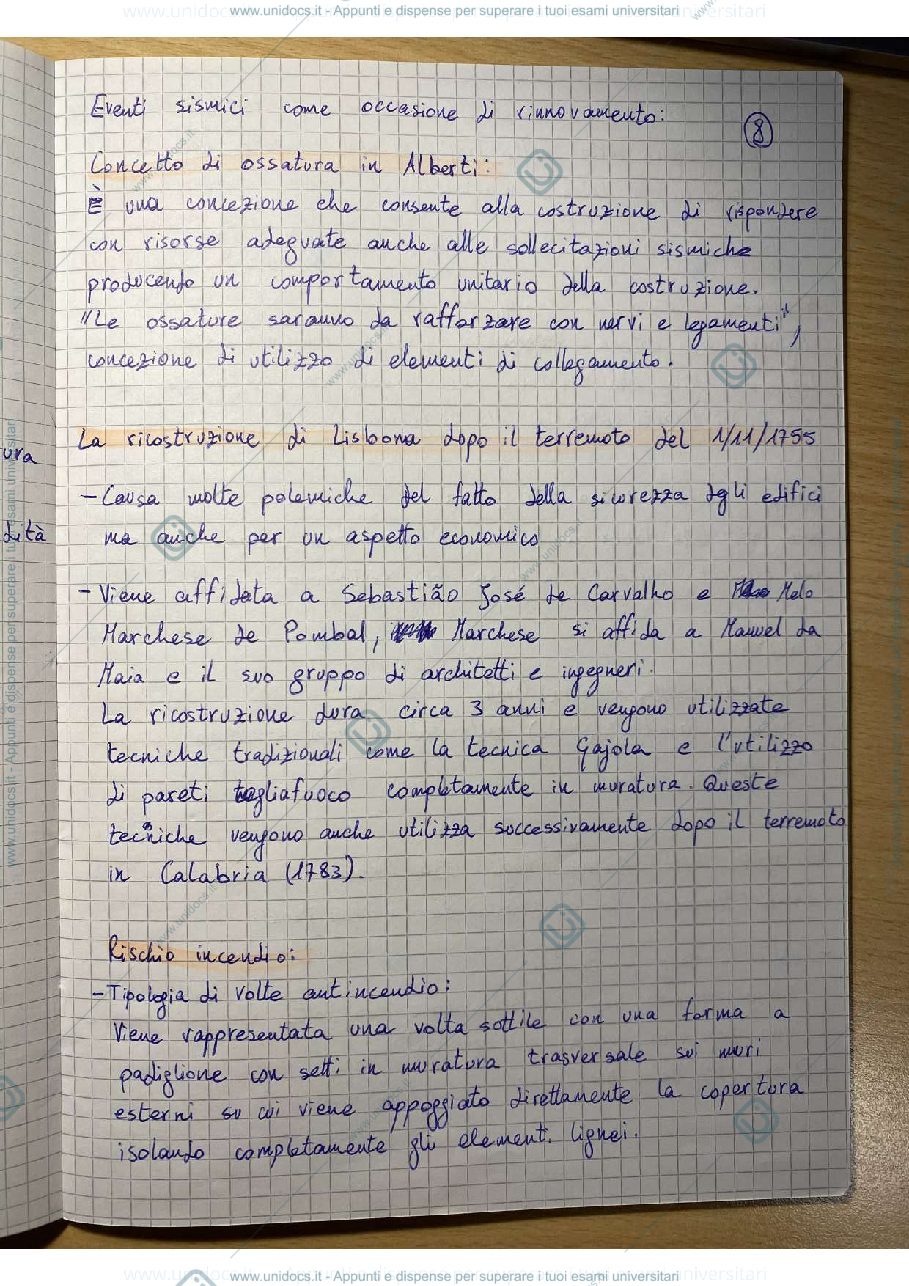 www.unidocs.it - Appunti e dispense per superare i tuoi esami universitari
Eventi sismici come occasione di rinnovamento:
8
Concetto di ossatura in Alberti:
È una concezione che consente alla costruzione di rispondere
con risorse adeguate anche alle sollecitazioni sismiche
producendo un comportamento unitario della costruzione.
"Le ossature saranno da rafforzare con nervi e legamenti",
concezione di utilizzo di elementi di collegamento.
La ricostruzione di Lisbona dopo il terremoto del 1/11/1755
ura
- Causa molte polemiche del fatto della sicurezza degli edifici
dità
ma anche per un aspetto economico
- Viene affidata a Sebastião José de Carvalho e Melo
Marchese de Pombal, Marchese si affida a Manuel da
Maia e il suo gruppo di architetti e ingegneri.
La ricostruzione dura circa 3 anni e vengono utilizzate
tecniche tradizionali come la tecnica Gajola e l'utilizzo
di pareti tagliafuoco completamente in muratura. Queste
tecniche vengono anche utilizza successivamente dopo il terremoto
in Calabria (1783).
Rischio incendio:
- Tipologia di Volte antincendio:
Viene rappresentata una volta sottile con una forma a
padiglione con setti in muratura trasversale sui muri
esterni su cui viene appoggiato direttamente la copertura
isolando completamente gli elementi lignei.
www.unidocs.it - Appunti e dispense per superare i tuoi esami universitari